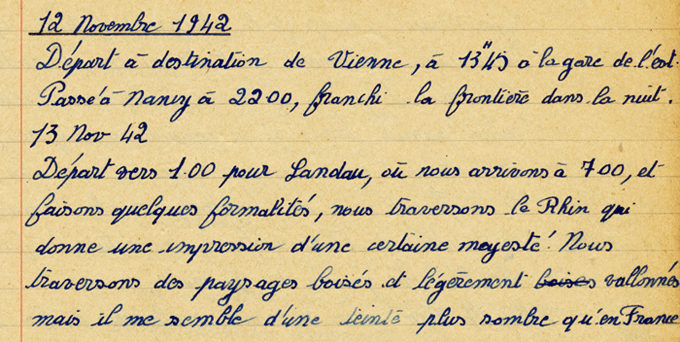 12 Novembre 1942
Départ à destination de Vienne, à 13"45 à la gare de l'est.
Passé à Nancy à 2200, franchi la frontière dans la nuit.
13 Nov 42
Départ vers 1.00 pour Landau, où nous arrivons à 700, et
faisons quelques formalités, nous traversons le Rhin qui
donne une impression d'une certaine majesté! Nous
traversons des paysages boisés et légèrement boisés vallonnés
mais il me semble d'une teinte plus sombre qu'en France